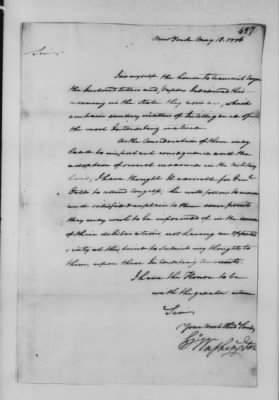 697
New York May 18. 1776
Sir
I do myself the honor to transmit you
the inclosed Letters and papers I received this
morning in the state they now are, which
contain sundry matters of Intelligence of
the most Interesting nature.
As the Consideration of them may
lead to important consequences and the
adoption of several measures in the military
line, I have thought it advisable for Genl
Gates to attend Congress, he will follow to morrow
and satisfie & explain to them some points
they may wish to be informed of in the course
of their deliberations not having an opportu-
nity at this time to submit my thoughts to
them upon these Interesting
I have the Honor to be
with the greatest esteem
Sir
Your most Obed Servt
Go Washington